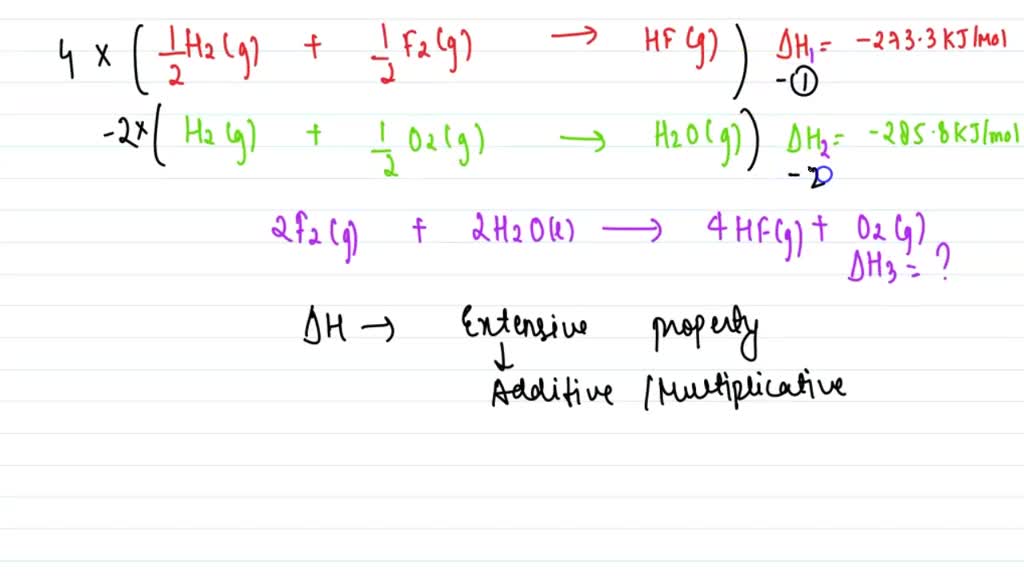 4 × ( 1/2 H2(g) + 1/2 F2(g) → HF(g) ) ΔH1 = -273.3 KJ/mol
- ①
-2× ( H2(g) + 1/2 O2(g) → H2O(g) ) ΔH2 = -285.8 KJ/mol
- 2
2F2(g) + 2H2O(l) → 4HF(g) + O2(g)
ΔH3 = ?
ΔH → Extensive property
↓
Additive / Multiplicative